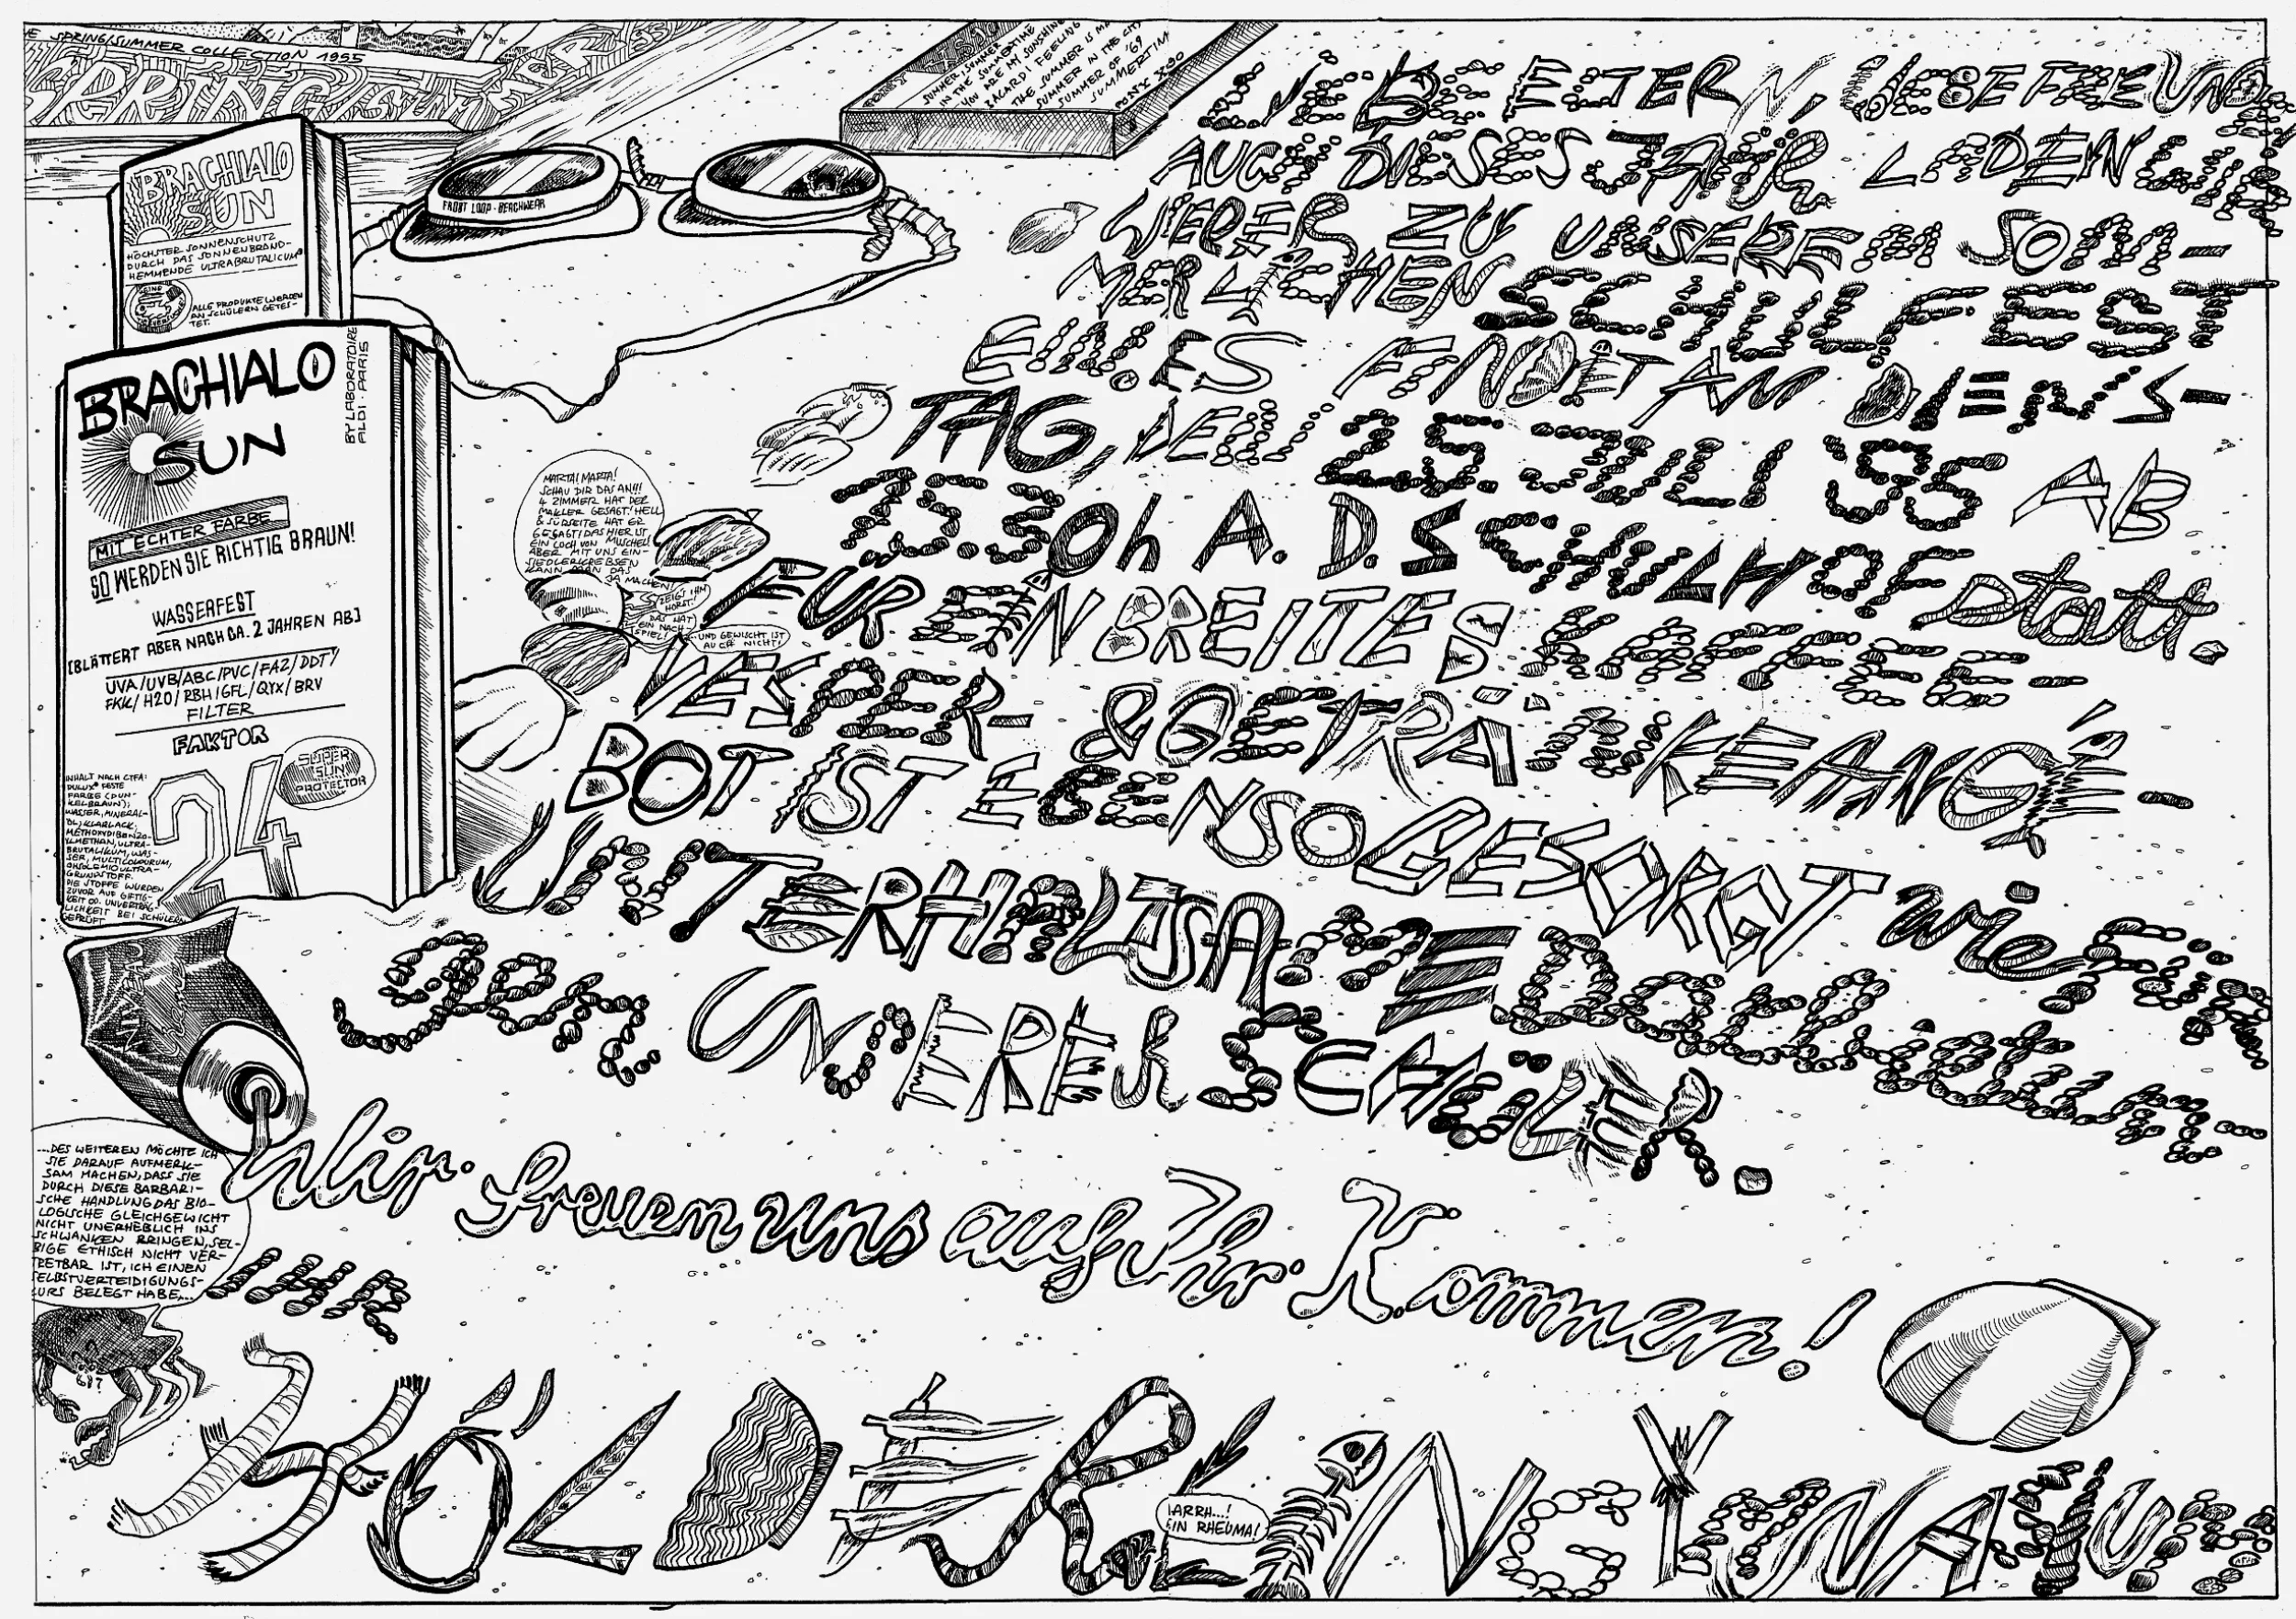 SPRING/SUMMER COLLECTION 1995
SPRING/SUM
SUMMER, SUMMER
IN THE SUMMERTIME
YOU ARE MY SUNSHINE
BACARDI FEELING
THE SUMMER IS MA
SUMMER IN THE CITY
SUMMER OF '69
SUMMERTIM
SONY X-90
BRACHIALO
SUN
HÖCHSTER SONNENSCHUTZ
DURCH DAS SONNENBRAND-
HEMMENDE ULTRABRUTALICUM®
ALLE PRODUKTE WERDEN
AN SCHÜLERN GETES-
TET.
FROST LOOP · BEACHWEAR
BRACHIALO
SUN
BY LABORATOIRE
ALDI · PARIS
MIT ECHTER FARBE
SO WERDEN SIE RICHTIG BRAUN!
WASSERFEST
[BLÄTTERT ABER NACH CA. 2 JAHREN AB]
UVA/UVB/ABC/PVC/FAZ/DDT/
FKK/H2O/RBH/GFL/QYX/BRV
FILTER
FAKTOR
24
SUPER
SUN
PROTECTOR
INHALT NACH CTFA:
DULUX® FESTE
FARBE (DUN-
KELBRAUN);
WASSER, MINERAL-
ÖL; KLARLACK;
METHOXYDIBENZO-
YLMETHAN, ULTRA-
BRUTALIKUM, WAS-
SER, MULTICOLOURUM,
GRUNDSTOFF.
DIE STOFFE WURDEN
ZUVOR AUF GIFTIG-
KEIT OD. UNVERTRÄG-
LICHKEIT BEI SCHÜLERN
GEPRÜFT
MARTA! MARTA!
SCHAU DIR DAS AN!!!
4 ZIMMER HAT DER
MAKLER GESAGT! HELL
& SÜDSEITE HAT ER
GESAGT! DAS HIER IST
EIN LOCH VON MUSCHEL!
ABER MIT UNS EIN-
SIEDLERKREBSEN
KANN MAN DAS
JA MACHEN!
ZEIG'S IHM
HORST!
DAS HAT
EIN NACH-
SPIEL!
...UND GEWISCHT IST
AUCH NICHT!
LIEBE ELTERN, LIEBE FREUNDE
AUCH DIESES JAHR LADEN WIR
WIEDER ZU UNSEREM SOM-
MERLICHEN SCHULFEST
EIN. ES FINDET AM DIENS-
TAG, DEN 25. JULI '95 AB
15.30h A. D. SCHULHOF statt.
FÜR EIN BREITES KAFFEE-
VESPER- & GETRÄNKEANGE-
BOT IST EBENSO GESORGT wie für
UNTERHALTSAME Darbietun-
gen UNSERER SCHÜLER.
Wir freuen uns auf Ihr Kommen!
NIVEAU
Creme
...DES WEITEREN MÖCHTE ICH
SIE DARAUF AUFMERK-
SAM MACHEN, DASS SIE
DURCH DIESE BARBARI-
SCHE HANDLUNG DAS BIO-
LOGISCHE GLEICHGEWICHT
NICHT UNERHEBLICH INS
SCHWANKEN BRINGEN, SEL-
BIGE ETHISCH NICHT VER-
TRETBAR IST, ICH EINEN
SELBSTVERTEIDIGUNGS-
KURS BELEGT HABE,...
IHR
HÖLDERLIN GYMNASIUM
ARRH...!
EIN RHEUMA!